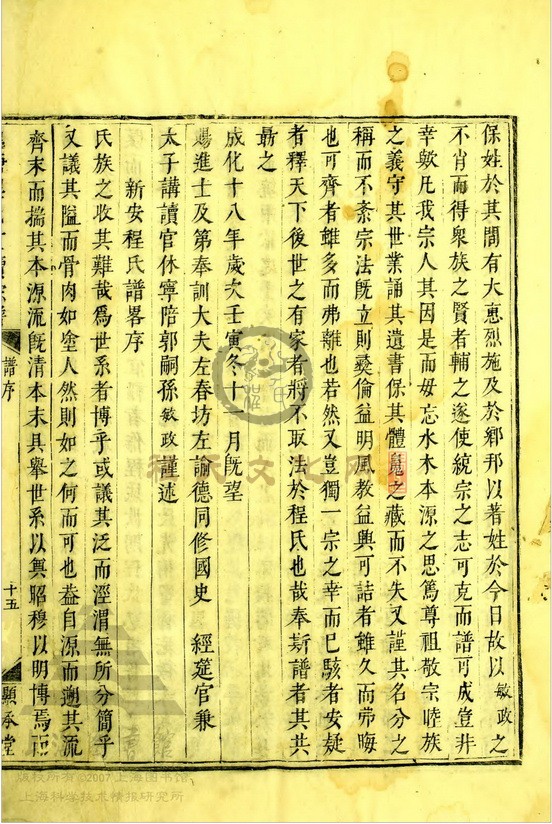 保姓於其間有大惠烈施及於鄉邦以著姓於今日故以敏政之
不肖而得衆族之賢者輔之遂使統宗之志可克而譜可成豈非
幸歟凡我宗人其因是而毋忘水木本源之思篤尊祖敬宗睦族
之義守其世業誦其遺書保其體魄之藏而不失又謹其名分之
稱而不紊宗法旣立則彜倫益明風教益興可詰者雖久而弗晦
也可齊者雖多而弗離也若然又豈獨一宗之幸而已駭者安疑
者釋天下後世之有家者將不取法於程氏也哉奉斯譜者其共
勗之
成化十八年歲次壬寅冬十一月旣望
賜進士及第奉訓大夫左春坊左諭德同修國史 經筵官兼
太子講讀官休寧陪郭嗣孫敏政謹述
新安程氏譜畧序
氏族之收其難哉爲世系者博乎或議其泛而涇渭無所分簡乎
又議其隘而骨肉如塗人然則如之何而可也葢自源而遡其流
齊末而揣其本源流旣清本末具舉世系以興昭穆以明博焉而
譜序
十五
顯承堂
程氏文化网
版权所有©2007上海图书馆
上海科学技术情报研究所